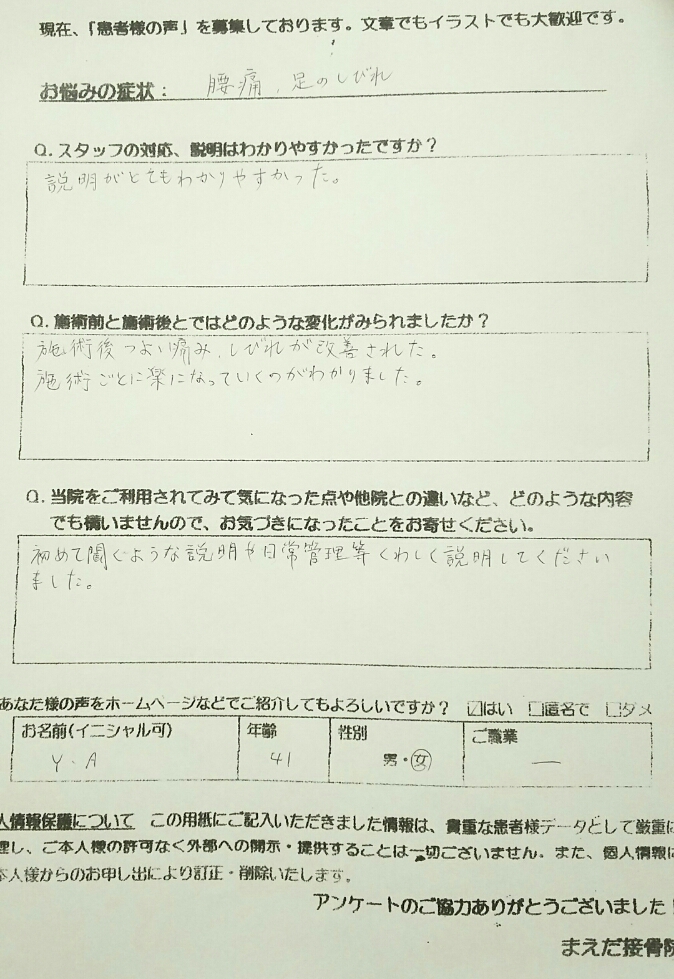 現在、「患者様の声」を募集しております。文章でもイラストでも大歓迎です。
お悩みの症状： 腰痛、足のしびれ
Q. スタッフの対応、説明はわかりやすかったですか？
説明がとてもわかりやすかった。
Q. 施術前と施術後とではどのような変化がみられましたか？
施術後つよい痛み、しびれが改善された。
施術ごとに楽になっていくのがわかりました。
Q. 当院をご利用されてみて気になった点や他院との違いなど、どのような内容
でも構いませんので、お気づきになったことをお寄せください。
初めて聞くような説明や日常管理等くわしく説明してください
ました。
あなた様の声をホームページなどでご紹介してもよろしいですか？ ☑はい □匿名で □ダメ
お名前(イニシャル可) 年齢 性別 ご職業
Y・A 41 男・女 —
人情報保護について この用紙にご記入いただきました情報は、貴重な患者様データとして厳重に
理し、ご本人様の許可なく外部への開示・提供することは一切ございません。また、個人情報は
本人様からのお申し出により訂正・削除いたします。
アンケートのご協力ありがとうございました！
まえだ接骨院